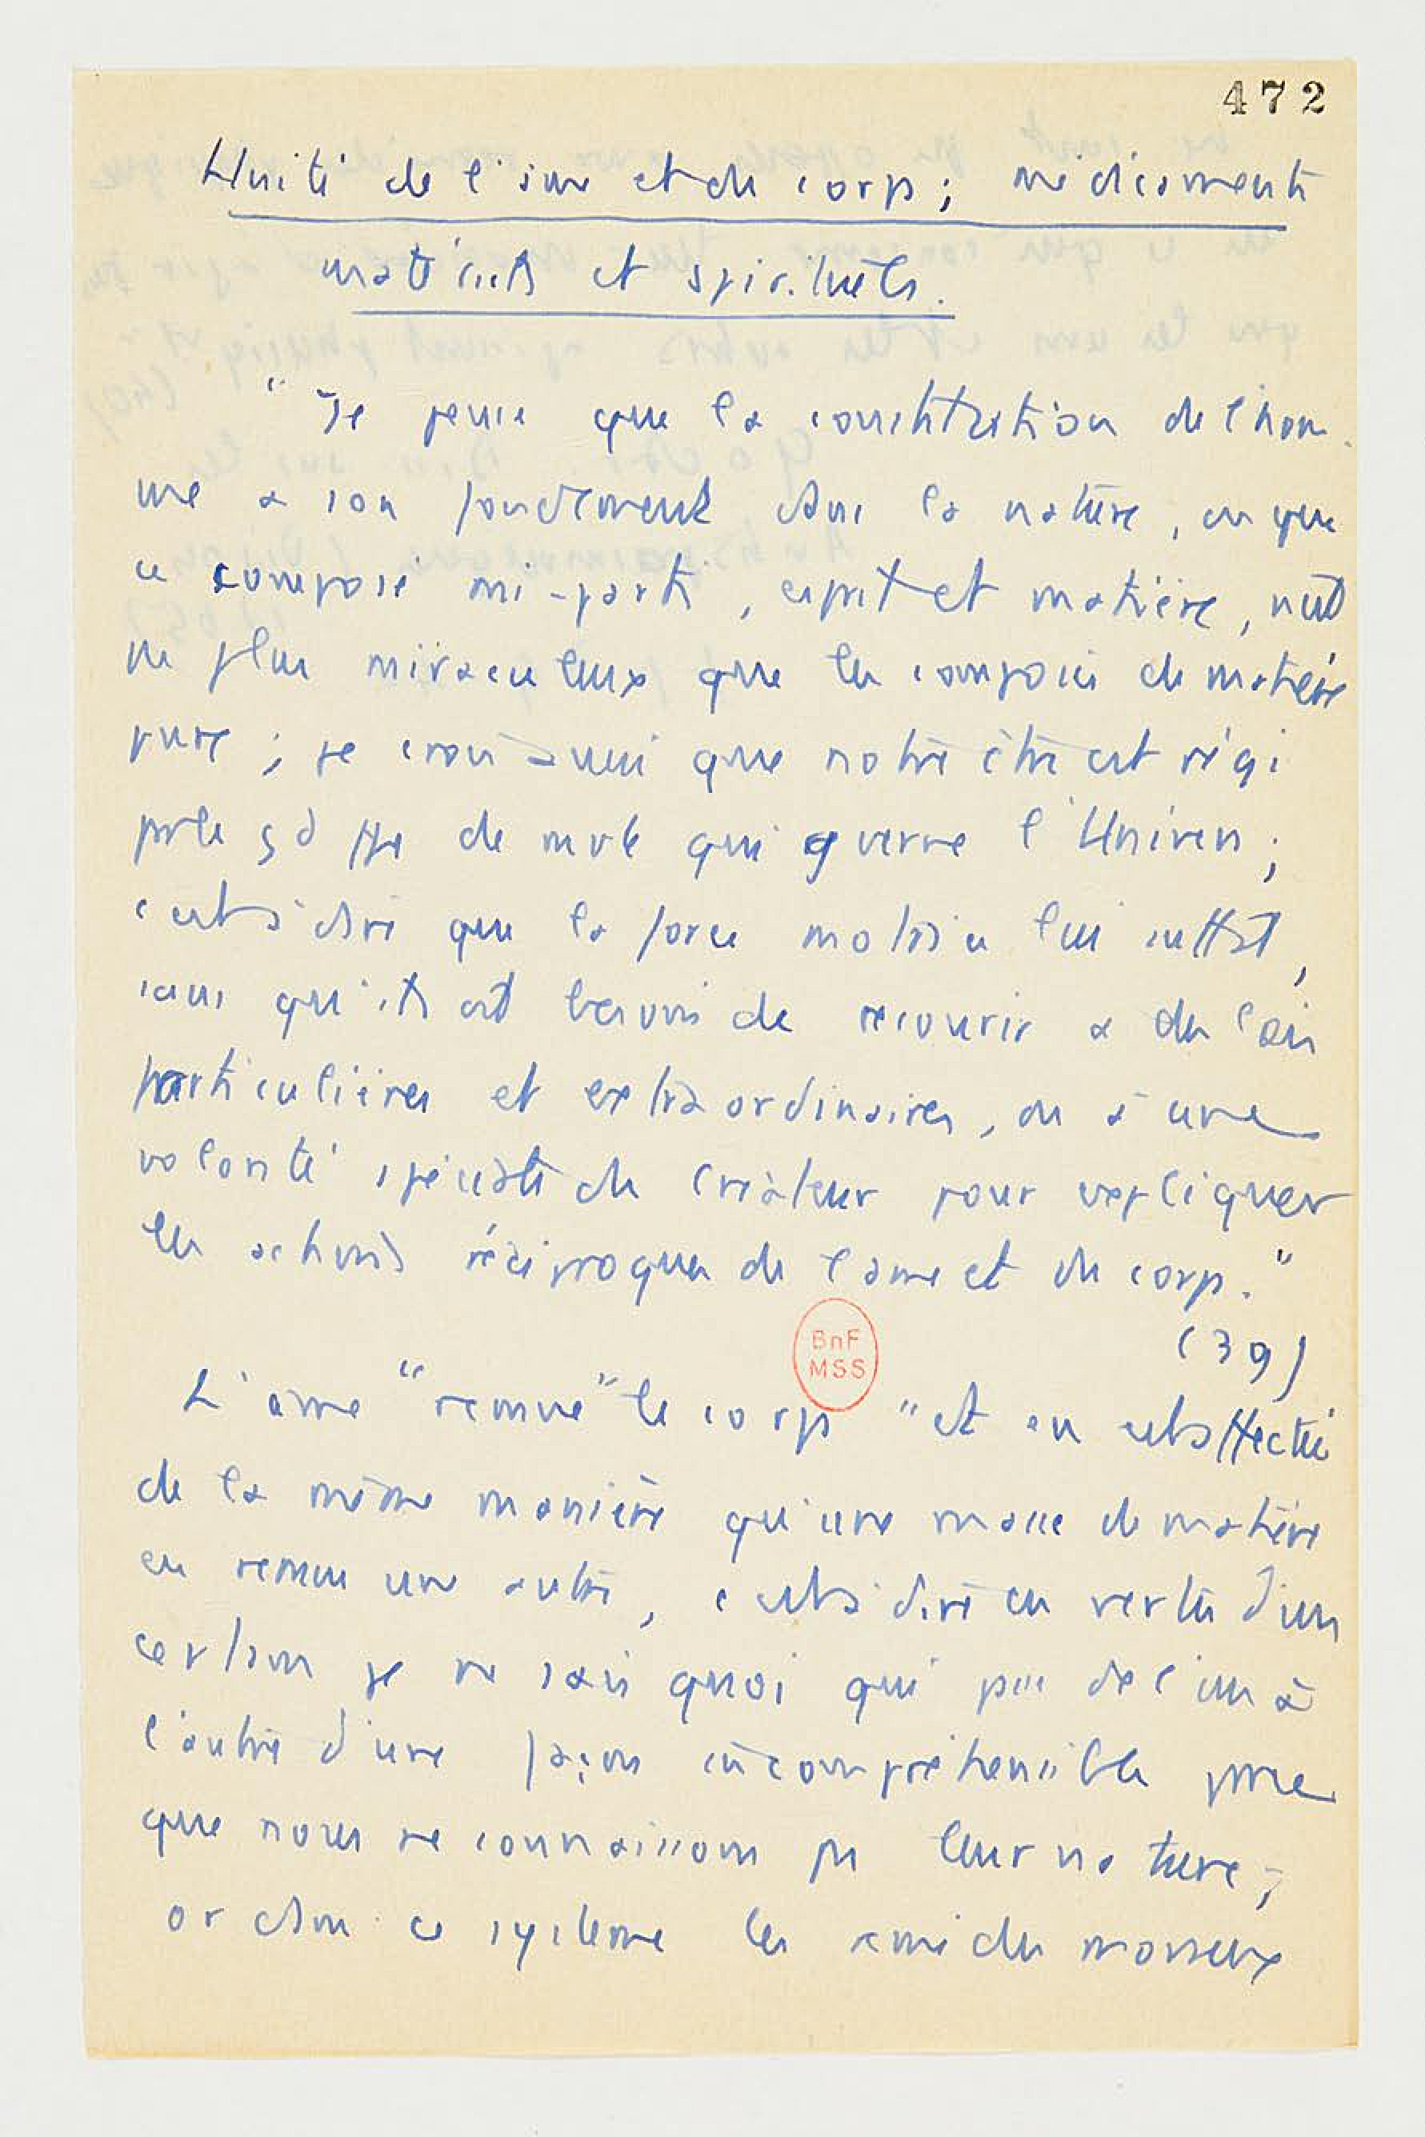 472
Unité de l'âme et du corps ; médicaments
matériels et spirituels.
" Je pense que la constitution de l'hom-
me a son fondement dans la nature, en que
ce composé mi-parti, esprit et matière, n'est
ni plus miraculeux que les composés de matière
pure ; je crois aussi que notre être est régi
par le gd de meble qui gverne l'Univers ;
c'est à dire que la force motrice lui suffit,
sans qu'il ait besoin de recourir à des lois
particulières et extraordinaires, ou à une
volonté spéciale du Créateur pour expliquer
les actions réciproques de l'âme et du corps. "
(39)
L'âme " remue " le corps " et en est affectée
de la même manière qu'une masse de matière
en remue une autre, c'est à dire en vertu d'un
certain je ne sais quoi qui passe de l'un à
l'autre d'une façon incompréhensible parce
que nous ne connaissons pas leur nature ;
or dans ce système les amis du merveux
BnF
MSS